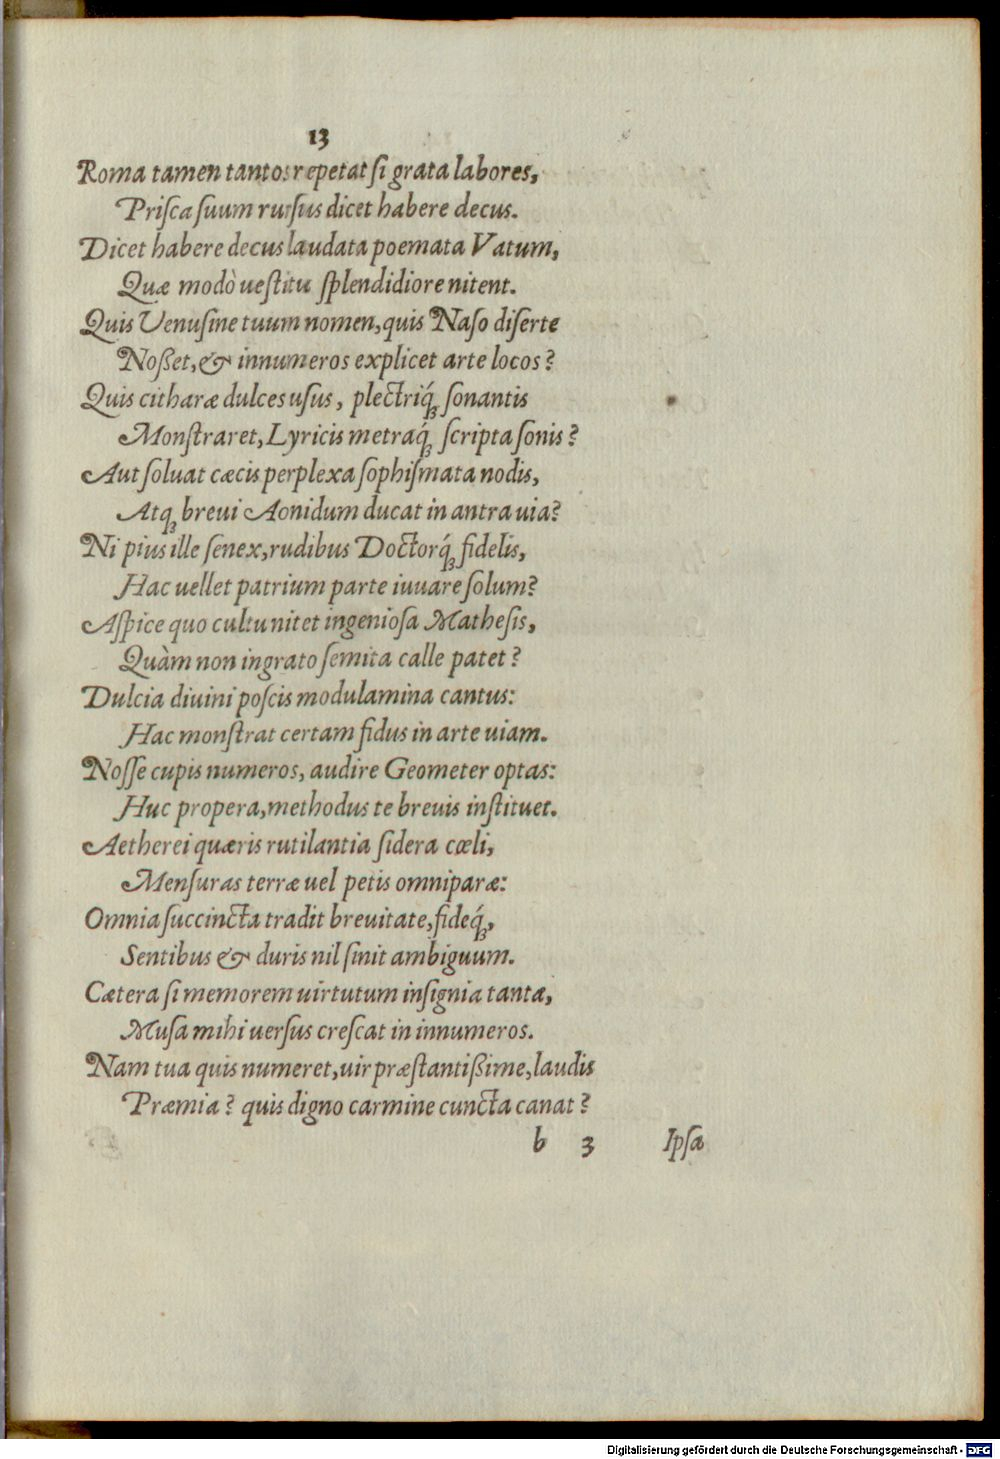 13
Roma tamen tantos repetat ſi grata labores,
Priſca ſuum rurſus dicet habere decus.
Dicet habere decus laudata poemata Vatum,
Quæ modò ueſtitu ſplendidiore nitent.
Quis Venuſine tuum nomen, quis Naſo diſerte
Noßet, & innumeros explicet arte locos?
Quis citharæ dulces uſus, plectriq́ꝫ ſonantis
Monſtraret, Lyricis metraq́ꝫ ſcripta ſonis?
Aut ſoluat cæcis perplexa ſophiſmata nodis,
Atqꝫ breui Aonidum ducat in antra uia?
Ni pius ille ſenex, rudibus Doctorq́ꝫ fidelis,
Hac uellet patrium parte iuuare ſolum?
Aſpice quo cultu nitet ingenioſa Matheſis,
Quàm non ingrato ſemita calle patet?
Dulcia diuini poſcis modulamina cantus:
Hac monſtrat certam fidus in arte uiam.
Noſſe cupis numeros, audire Geometer optas:
Huc propera, methodus te breuis inſtituet.
Aetherei quæris rutilantia ſidera cœli,
Menſuras terræ uel petis omniparæ:
Omnia ſuccincta tradit breuitate, fideq́ꝫ,
Sentibus & duris nil ſinit ambiguum.
Cætera ſi memorem uirtutum inſignia tantæ,
Muſa mihi uerſus creſcat in innumeros.
Nam tua quis numeret, uir præſtantißime, laudis
Præmia? quis digno carmine cuncta canat?
b 3 Ipſa
Digitalisierung gefördert durch die Deutsche Forschungsgemeinschaft - DFG